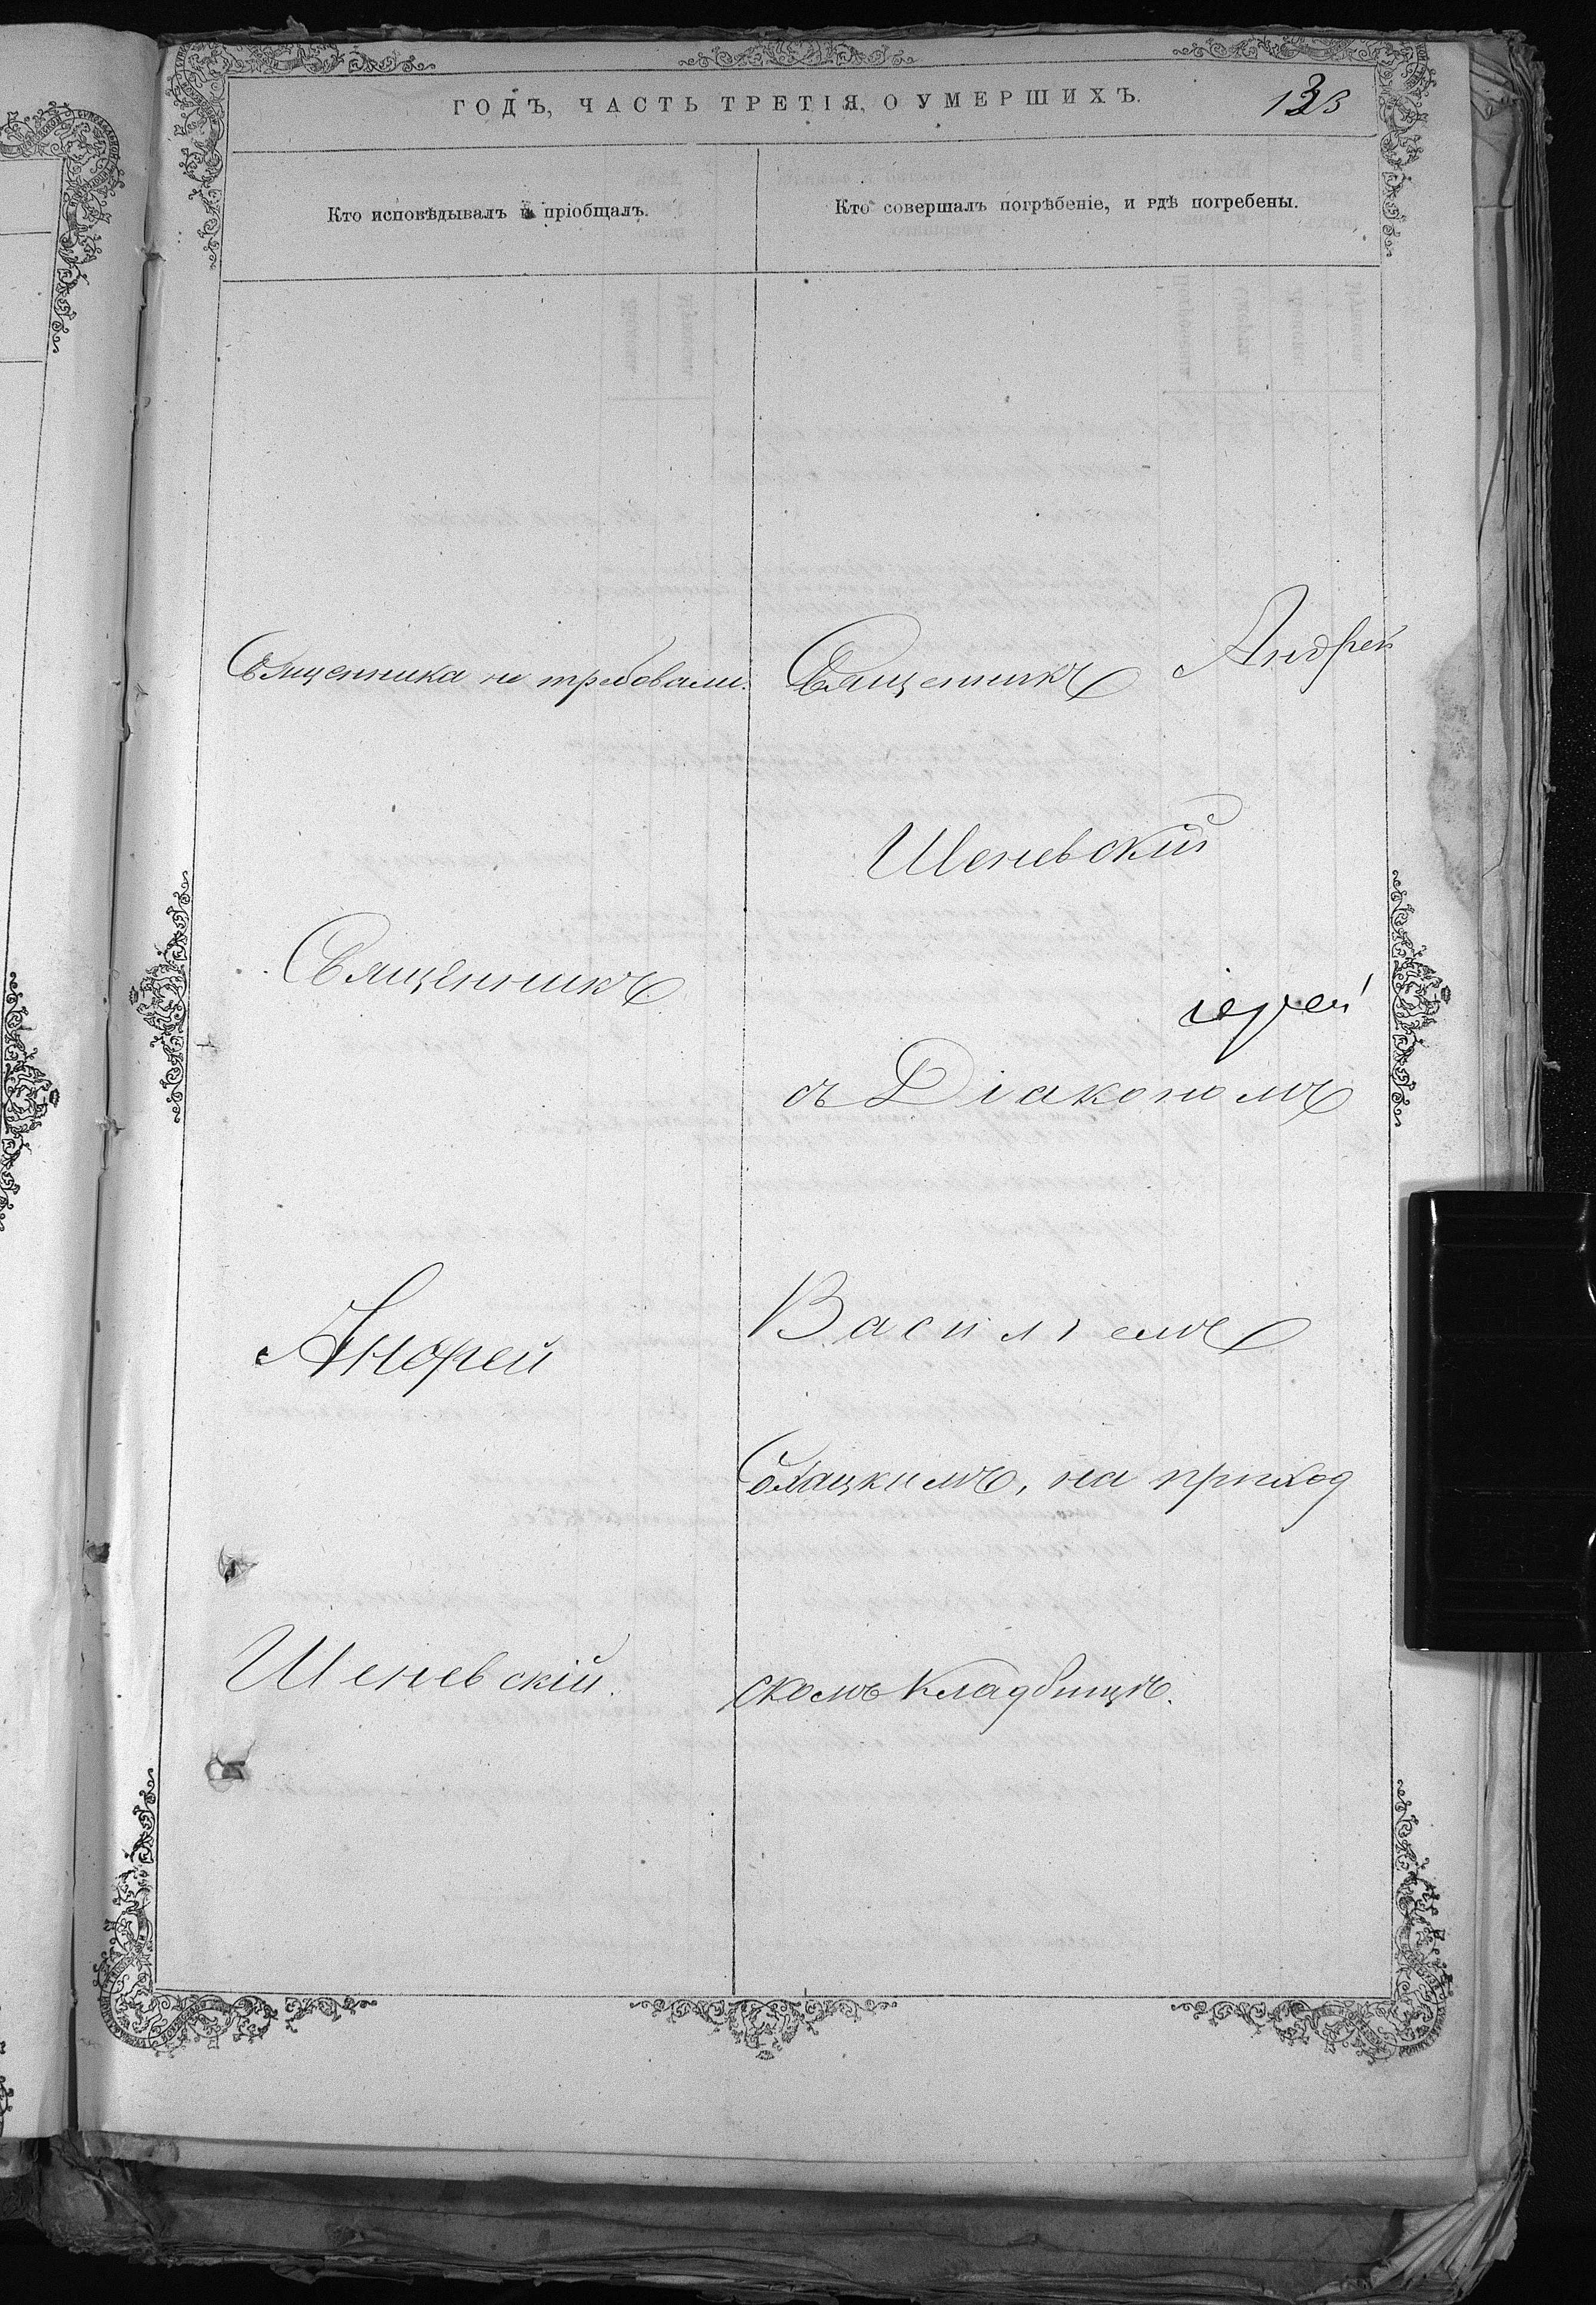 ГОДЪ, ЧАСТЬ ТРЕТІЯ, О УМЕРШИХЪ.
Кто исповѣдывалъ и пріобщалъ.
Кто совершалъ погрѣбеніе, и гдѣ погребены.
Священника не требовали.
Священникъ
Андрей
Шеневскій.
Священникъ Андрей
Шеневскій
іерей
съ Діакономъ
Василіемъ
на приход
скомъ кладбищѣ.